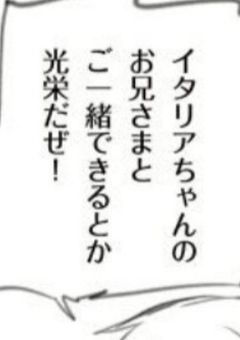 イタリアちゃんの
お兄さまと
ご一緒できるとか
光栄だぜ！